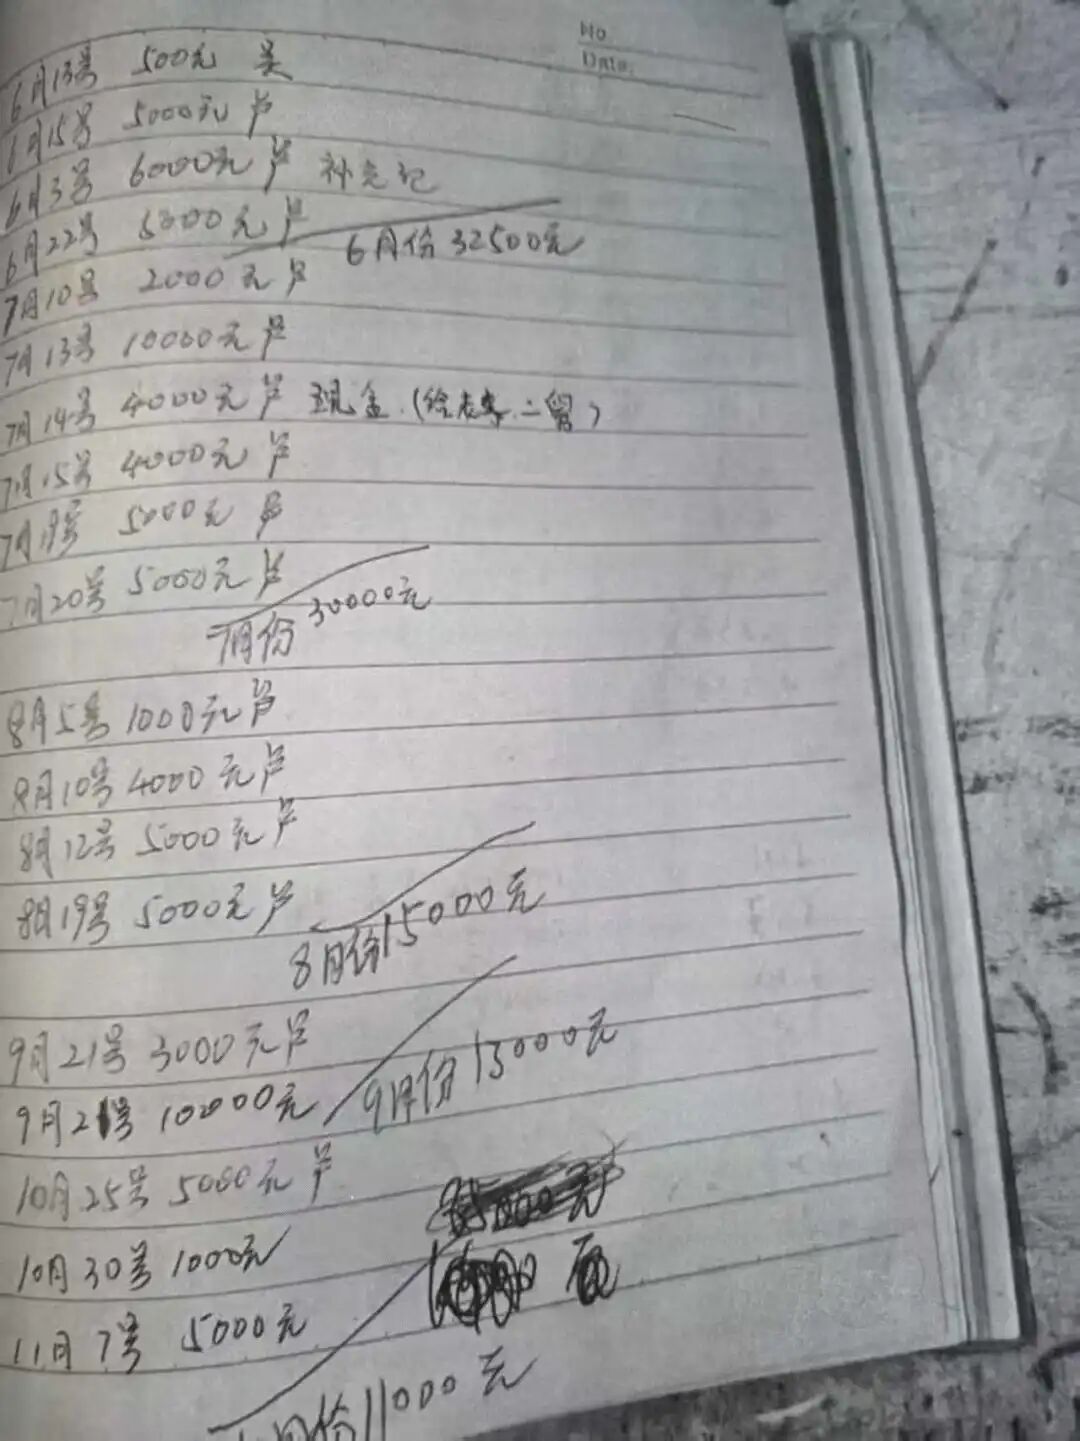 No
Date.
6月13号 500元 吴
6月15号 5000元 芦
6月3号 6000元 芦 补充记
6月22号 5000元 芦
6月份32500元
7月10号 2000元 芦
7月13号 10000元 芦
7月14号 4000元 芦 现金.(给 二留)
7月15号 4000元 芦
7月19号 5000元 芦
7月20号 5000元 芦
7月份 30000元
8月5号 1000元 芦
8月10号 4000元 芦
8月12号 5000元 芦
8月19号 5000元 芦
8月份15000元
9月21号 3000元 芦
9月21号 10000元
9月份13000元
10月25号 5000元 芦
10月30号 1000元
11月7号 5000元
月份11000元